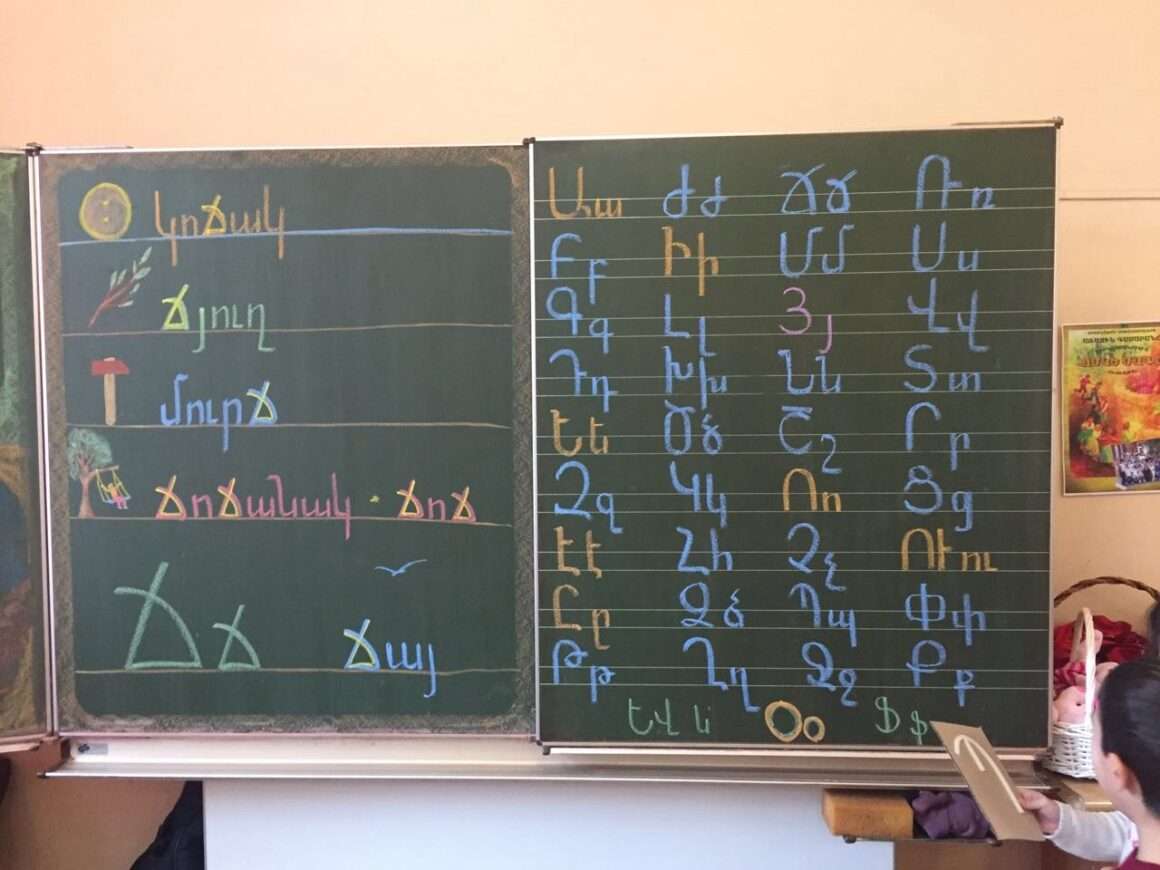 կոճակ
ճյուղ
մուրճ
ճոճանակ - ճոճ
Ճ ճ ճայ
Աա Ժժ Ճճ Ռռ
Բբ Իի Մմ Սս
Գգ Լլ Յյ Վվ
Դդ Խխ Նն Տտ
Եե Ծծ Շշ Րր
Զզ Կկ Ոո Ցց
Էէ Հհ Չչ ՈՒ ու
Ըը Ձձ Պպ Փփ
Թթ Ղղ Ջջ Քք
ԵՎ և Օօ Ֆֆ